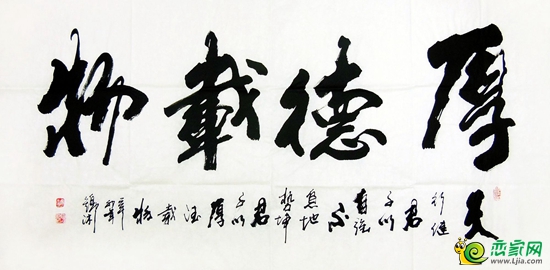 厚德載物
天行健君子以自强不息地势坤君子以厚德載物
恋家网
www.Ljia.com